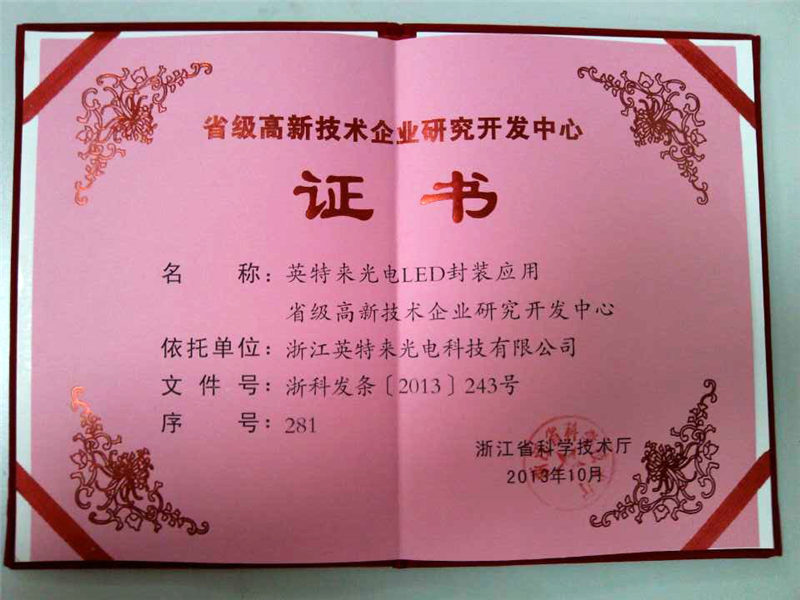 省级高新技术企业研究开发中心
证书
名称：英特来光电LED封装应用
省级高新技术企业研究开发中心
依托单位：浙江英特来光电科技有限公司
文件号：浙科发条〔2013〕243号
序号：281
浙江省科学技术厅
2013年10月